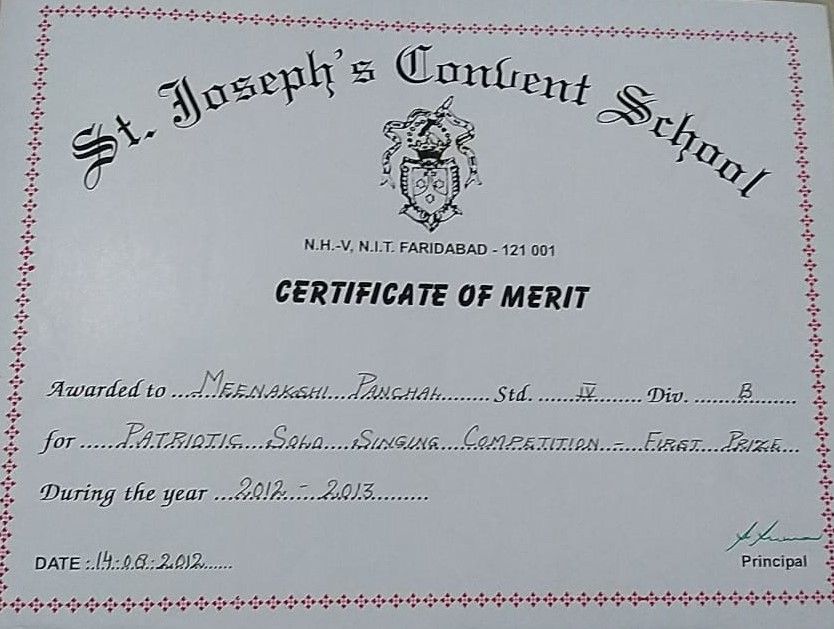 St. Joseph's Convent School
N.H.-V, N.I.T. FARIDABAD - 121 001
CERTIFICATE OF MERIT
Awarded to ... MEENAKSHI PANCHAL ........ Std. ........ IV ......... Div. ........ B ........
for ..... PATRIOTIC SOLO SINGING COMPETITION - FIRST PRIZE ...
During the year ... 2012 - 2013 .........
DATE : 14.08.2012 ......
Principal